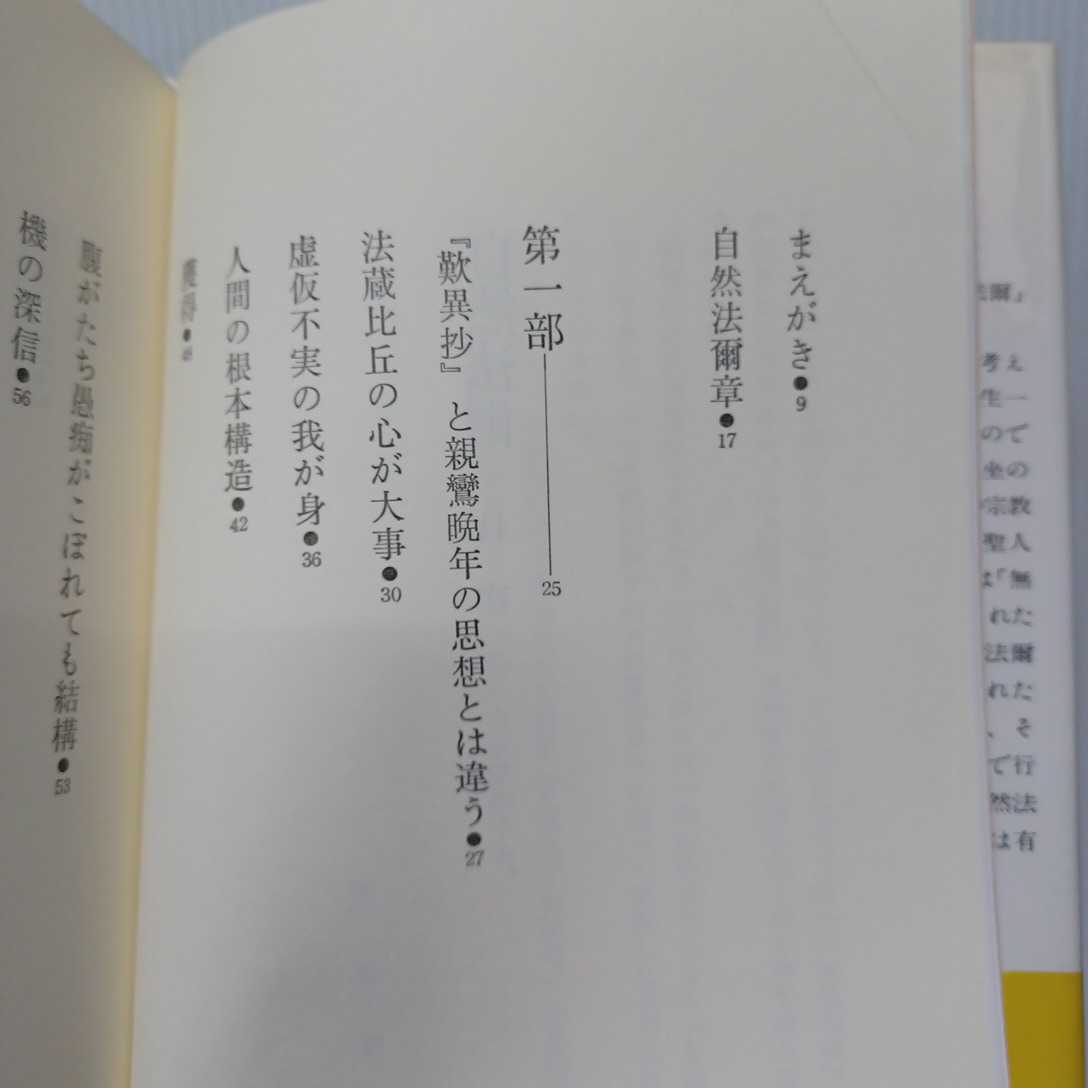 まえがき●9
自然法爾章●17
第一部――25
『歎異抄』と親鸞晩年の思想とは違う●27
法蔵比丘の心が大事●30
虚仮不実の我が身●36
人間の根本構造●42
獲得●48
腹がたち愚痴がこぼれても結構●53
機の深信●56
法爾」
考え
生一
ので
坐の
宗教
聖人
は「無
れた
法爾
れた
、そ
で行
然法
は有